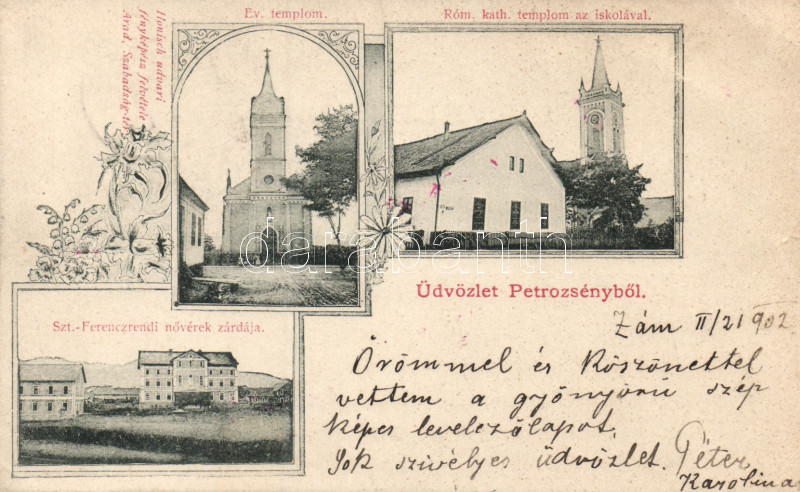 Ev. templom.
Róm. kath. templom az iskolával.
Ilonisch udvari
fényképész felvétele
Arad, Szabadság-tér
darabanth
Üdvözlet Petrozsényből.
Szt.-Ferenczrendi nővérek zárdája.
Zám II/21 902
Örömmel és Köszönettel
vettem a gyönyörü szép
képes levelezőlapot.
Sok szivélyes üdvözlet. Péter
Karolina